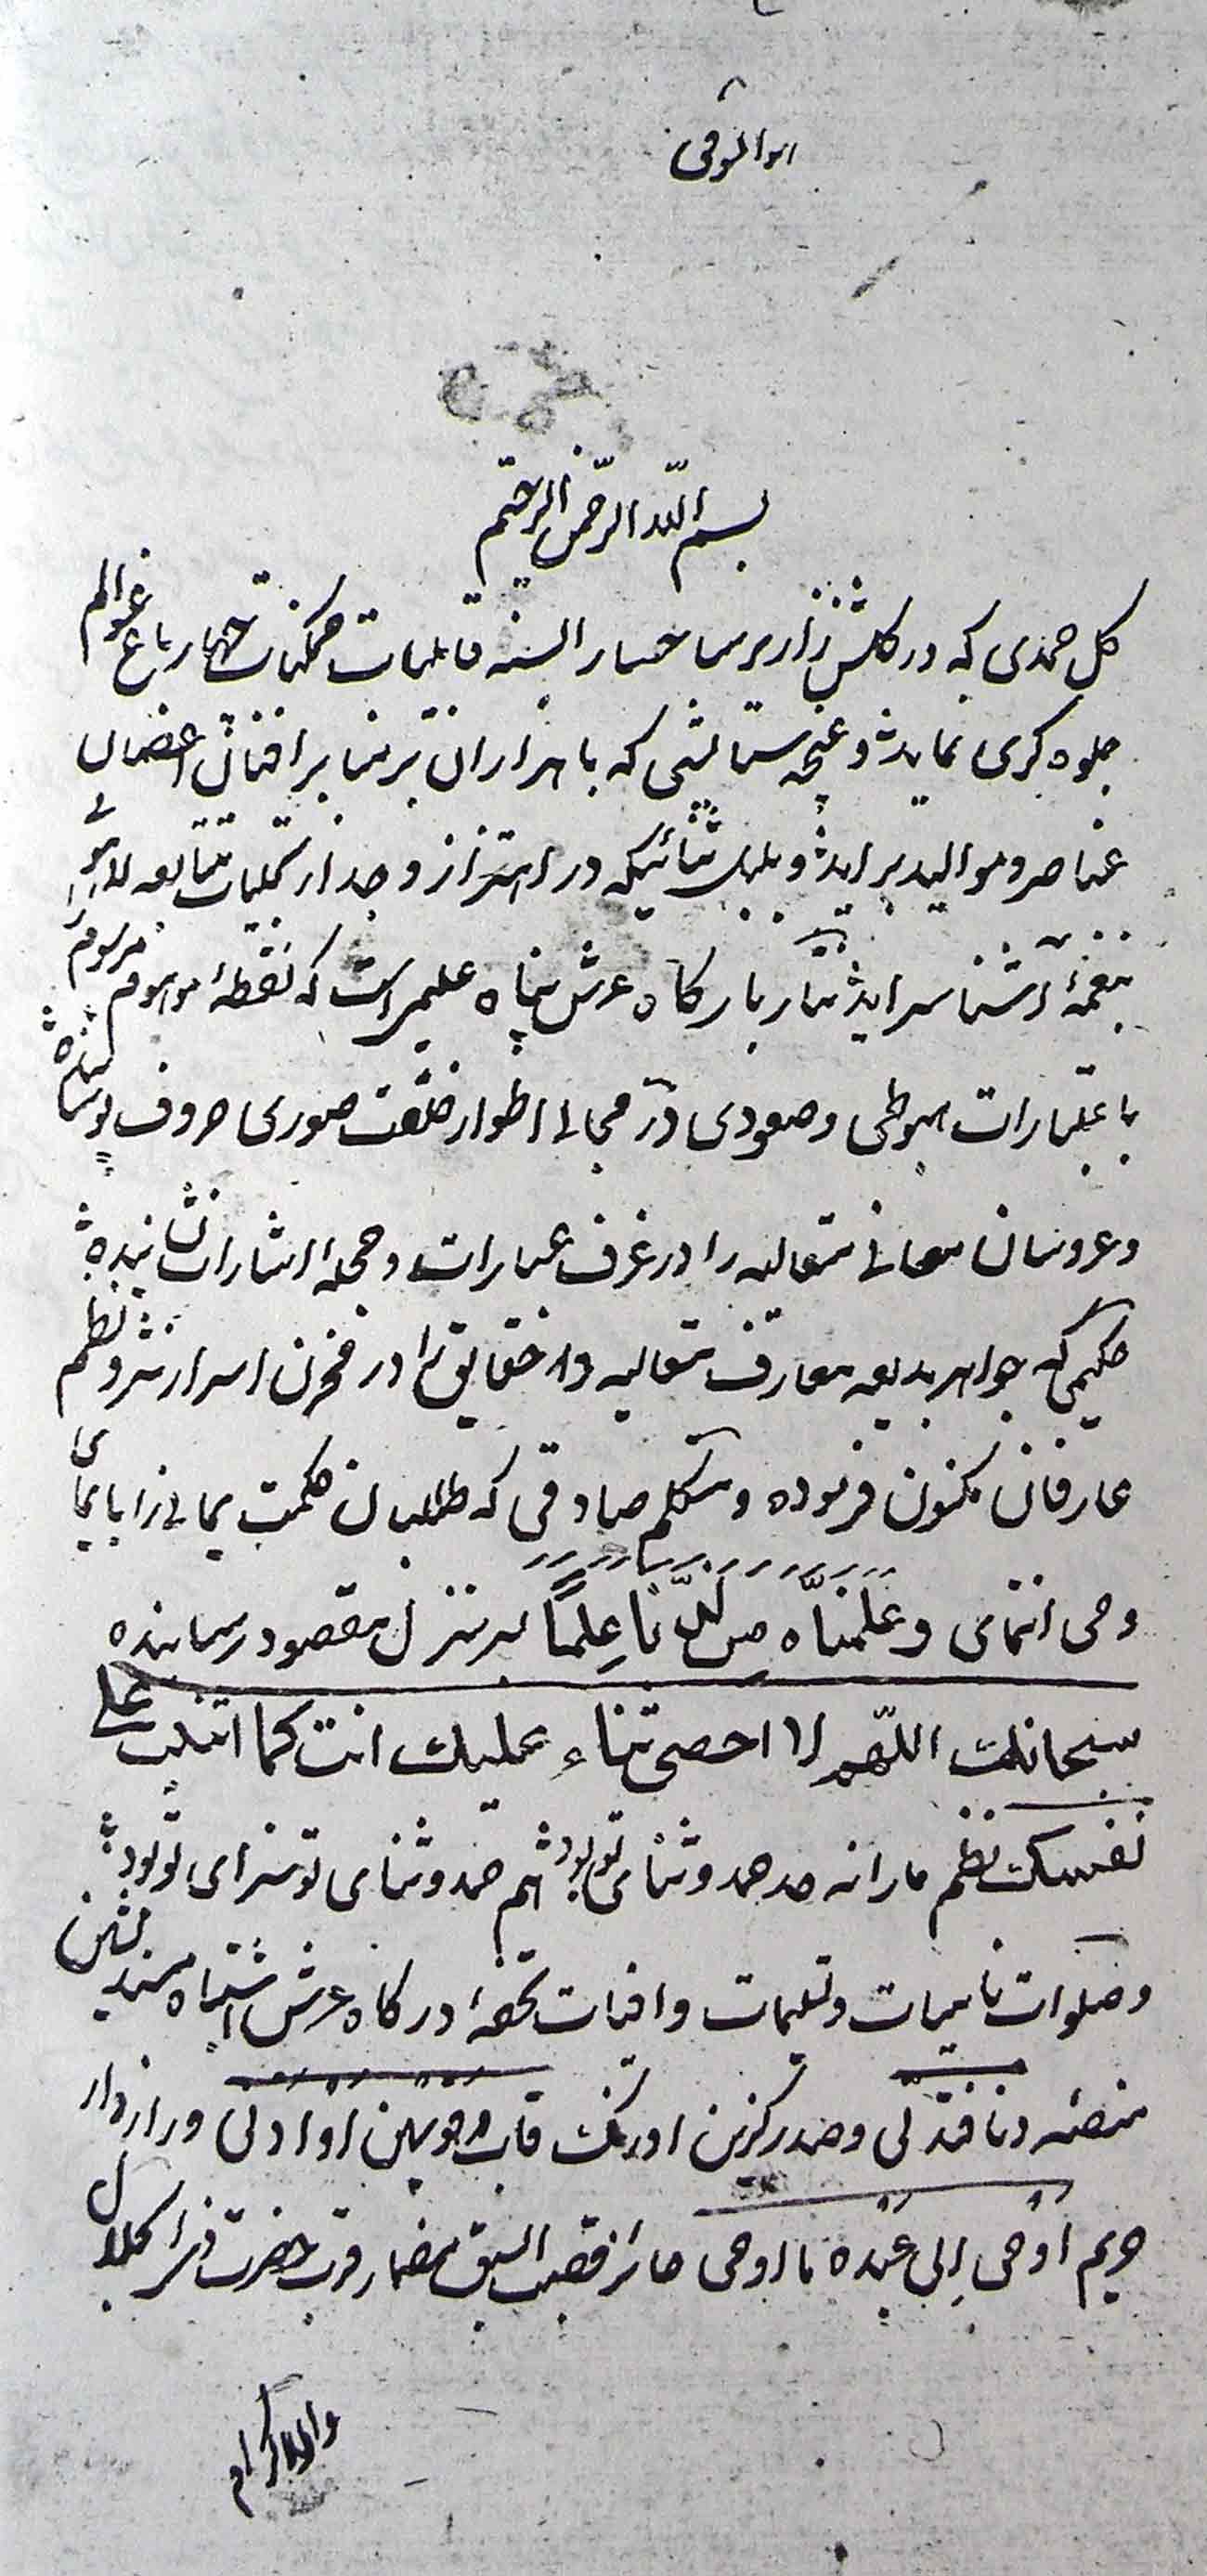 هو الموفق
بسم الله الرّحمن الرّحیم
کل حمدی که در کلشن زار بر سا حسار السنه قابلیات ممکنات چهار باغ عوالم
جلوه کری نماید و غنچه ستایشی که با هزاران نشو نما بر افنان اغصان
عناصر و موالید بر اید و بلبل ثنائیکه در اهتزاز وجد از تجلیات متتابعه
بنغمهٔ آشنا سراید نثار بارکاه عرش پناه علیمراست که نقطهٔ موهوم مرسوم
باعتبارات هبوطی و صعودی در مجالی اطوار خلعت صوری حروف پوشانیده
و عروسان معانی متعالیه را در غرف عبارات و حجلهٔ اشارات نشانیده
حکیمی که جواهر بدیعه معارف متعالیه و حقایق را در مخزن اسرار نثر و نظم
عارفان مکنون فرموده و متکلم صادقی که طالبان حکمت یمانی را بایمای
وحی انتمای و عَلَّمناه مِن لَّدُنَّا عِلمًا بسر منزل مقصود رسانیده
سبحانک اللّهم لا احصی ثناء علیک انت کما اثنیت علی
نفسک نظم ما را نه حد حمد و ثنای تو بود هم حمد و ثنای تو سزای تو بود
و صلوات نامیات و تسلیمات وافیات تحفهٔ درکاه عرش اشتباه مسند نشین
منصّه دنا فتدلی و صدر کزین اورنک قاب قوسین او ادنی و رازدار
حریم اوحی اِلی عبده ما اوحی حائز قصب السبق مضمار قرب حضرت ذی الجلال
والاکرام